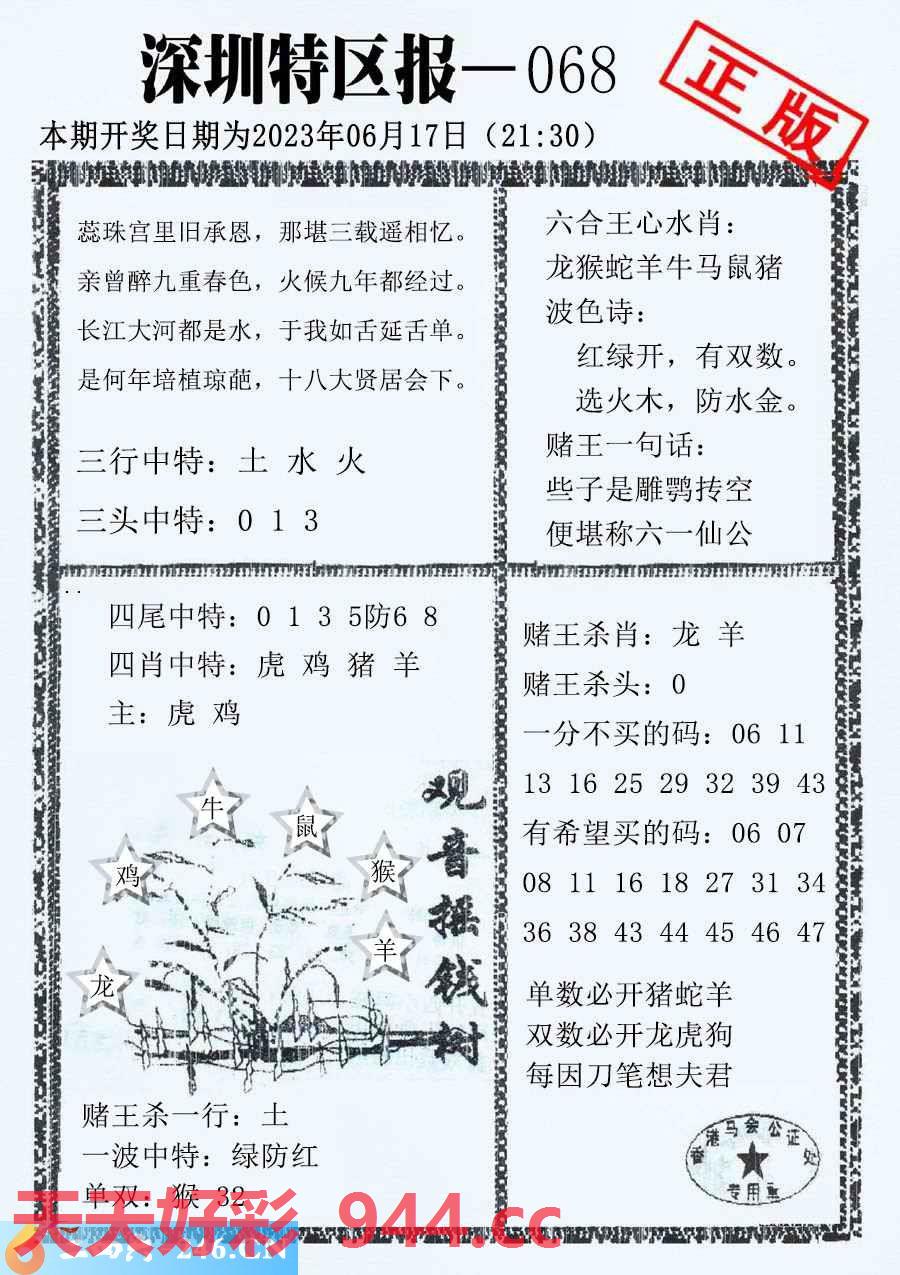 深圳特区报—068
正版
本期开奖日期为2023年06月17日（21:30）
蕊珠宫里旧承恩，那堪三载遥相忆。
亲曾醉九重春色，火候九年都经过。
长江大河都是水，于我如舌延舌单。
是何年培植琼葩，十八大贤居会下。
三行中特：土 水 火
三头中特：0 1 3
六合王心水肖：
龙猴蛇羊牛马鼠猪
波色诗：
红绿开，有双数。
选火木，防水金。
赌王一句话：
些子是雕鹗抟空
便堪称六一仙公
四尾中特：0 1 3 5防6 8
四肖中特：虎 鸡 猪 羊
主：虎 鸡
牛
鼠
鸡
猴
羊
龙
观音摇钱树
赌王杀一行：土
一波中特：绿防红
单双：猴 32
赌王杀肖：龙 羊
赌王杀头：0
一分不买的码：06 11
13 16 25 29 32 39 43
有希望买的码：06 07
08 11 16 18 27 31 34
36 38 43 44 45 46 47
单数必开猪蛇羊
双数必开龙虎狗
每因刀笔想夫君
香港马会公证处
专用章
天天好彩 944.cc